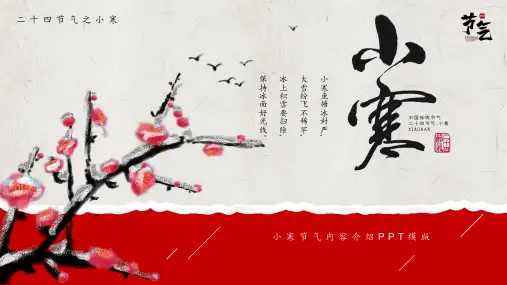 二十四节气之小寒
节气
小寒
小寒鱼塘冰封严，
大雪纷飞不稀罕，
冰上积雪要扫除，
保持冰面好光线。
中国传统节气
二十四节气·小寒
XIAOHAN
小寒节气内容介绍PPT模版